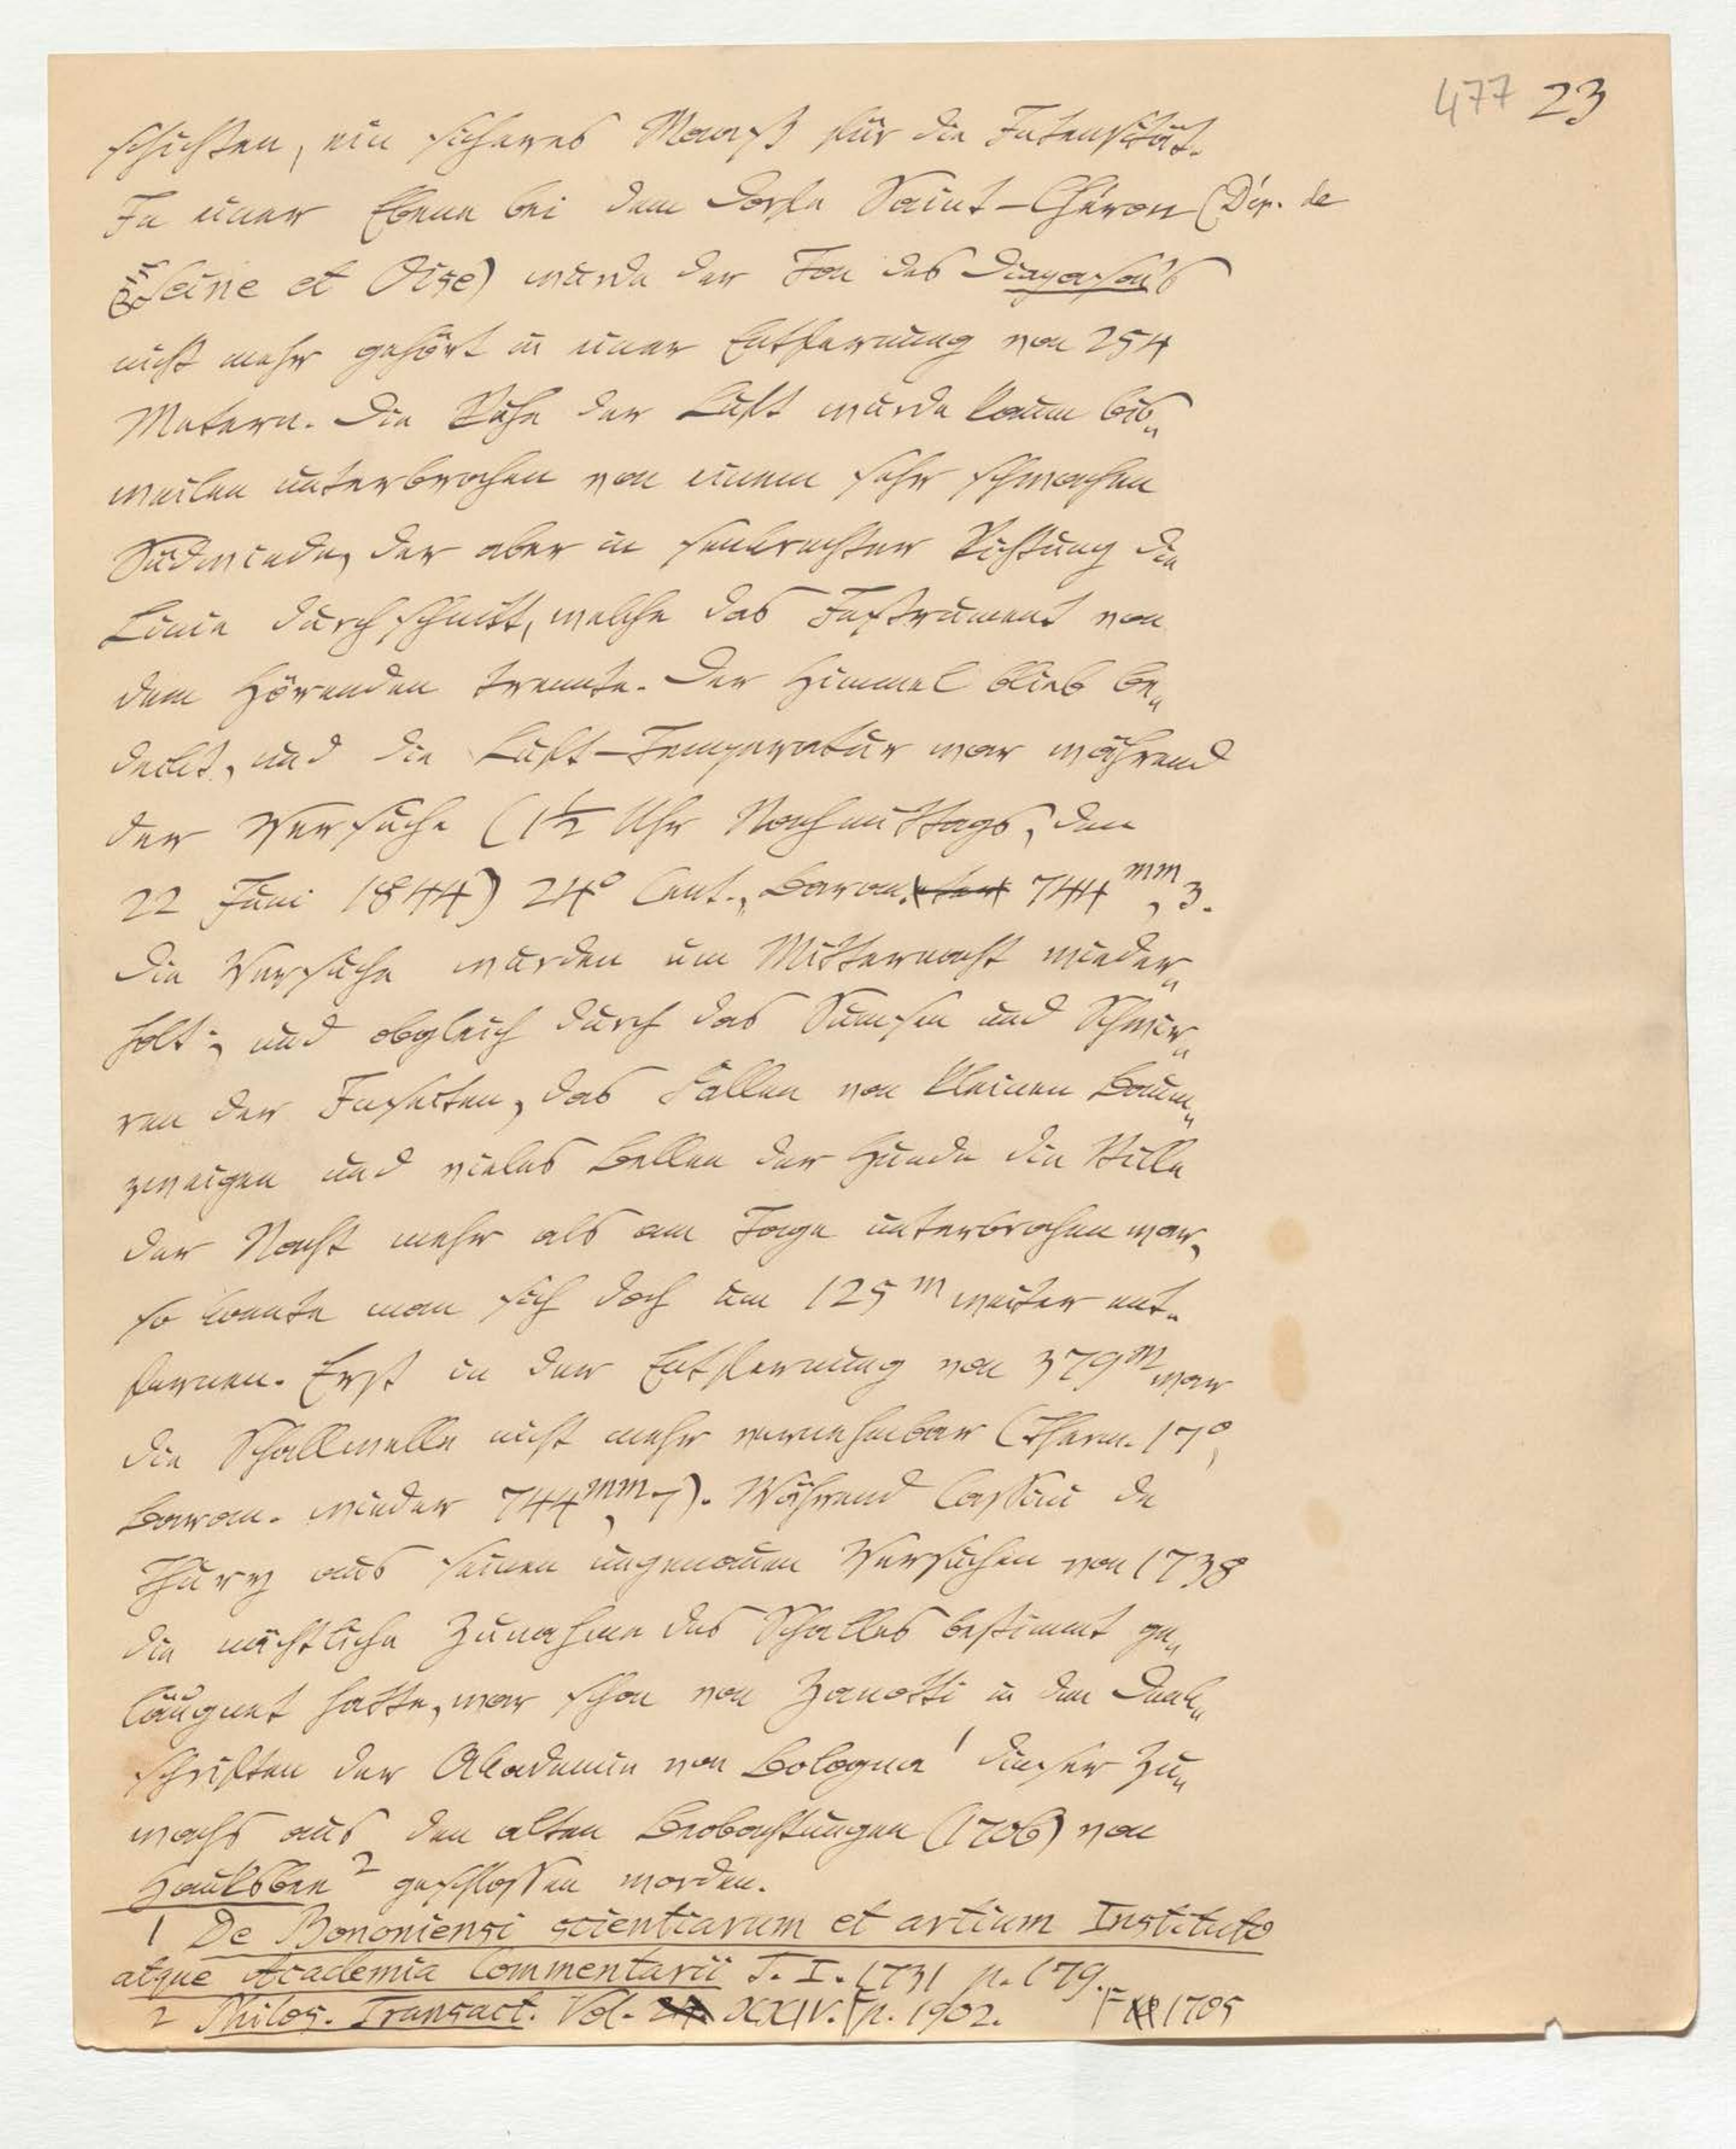 477 23
schichten, ein sicheres Maaß für die Intensität.
In einer Ebene bei dem Dorfe Saint-Chéron (Dép. de
Seine et Oise) wurde der Ton des Diapason's
nicht mehr gehört in einer Entfernung von 254
Metern. Die Ruhe der Luft wurde kaum bis„
weilen unterbrochen von einem sehr schwachen
Südwinde, der aber in senkrechter Richtung die
Linie durchschnitt, welche das Instrument von
dem Hörenden trennte. Der Himmel blieb be„
deckt, und die Luft-Temperatur war während
der Versuche (1½ Uhr Nachmittags, den
22 Juni 1844) 24° Cent., Barom. 744mm,3.
Die Versuche wurden um Mitternacht wieder„
holt; und obgleich durch das Sumsen und Schwir„
ren der Insecten, das Fallen von kleinen Baum„
zweigen und vieles Bellen der Hunde die Stille
der Nacht mehr als am Tage unterbrochen war,
so konnte man sich doch um 125m weiter ent„
fernen. Erst in der Entfernung von 379m war
die Schallwelle nicht mehr vernehmbar (Therm. 17°,
Barom. wieder 744mm,7). Während Cassini de
Thury aus seinen ungenauen Versuchen von 1738
die nächtliche Zunahme des Schalles bestimmt ge„
läugnet hatte, war schon von Zanotti in den Denk„
schriften der Akademie von Bologna 1 dieser Zu„
wachs aus den alten Beobachtungen (1706) von
Hauksbee 2 geschlossen worden.
1 De Bononiensi scientiarum et artium Instituto
atque Academia Commentarii T. I. 1731 p. 179.
2 Philos. Transact. Vol. XXIV. F p. 1902. F 1705